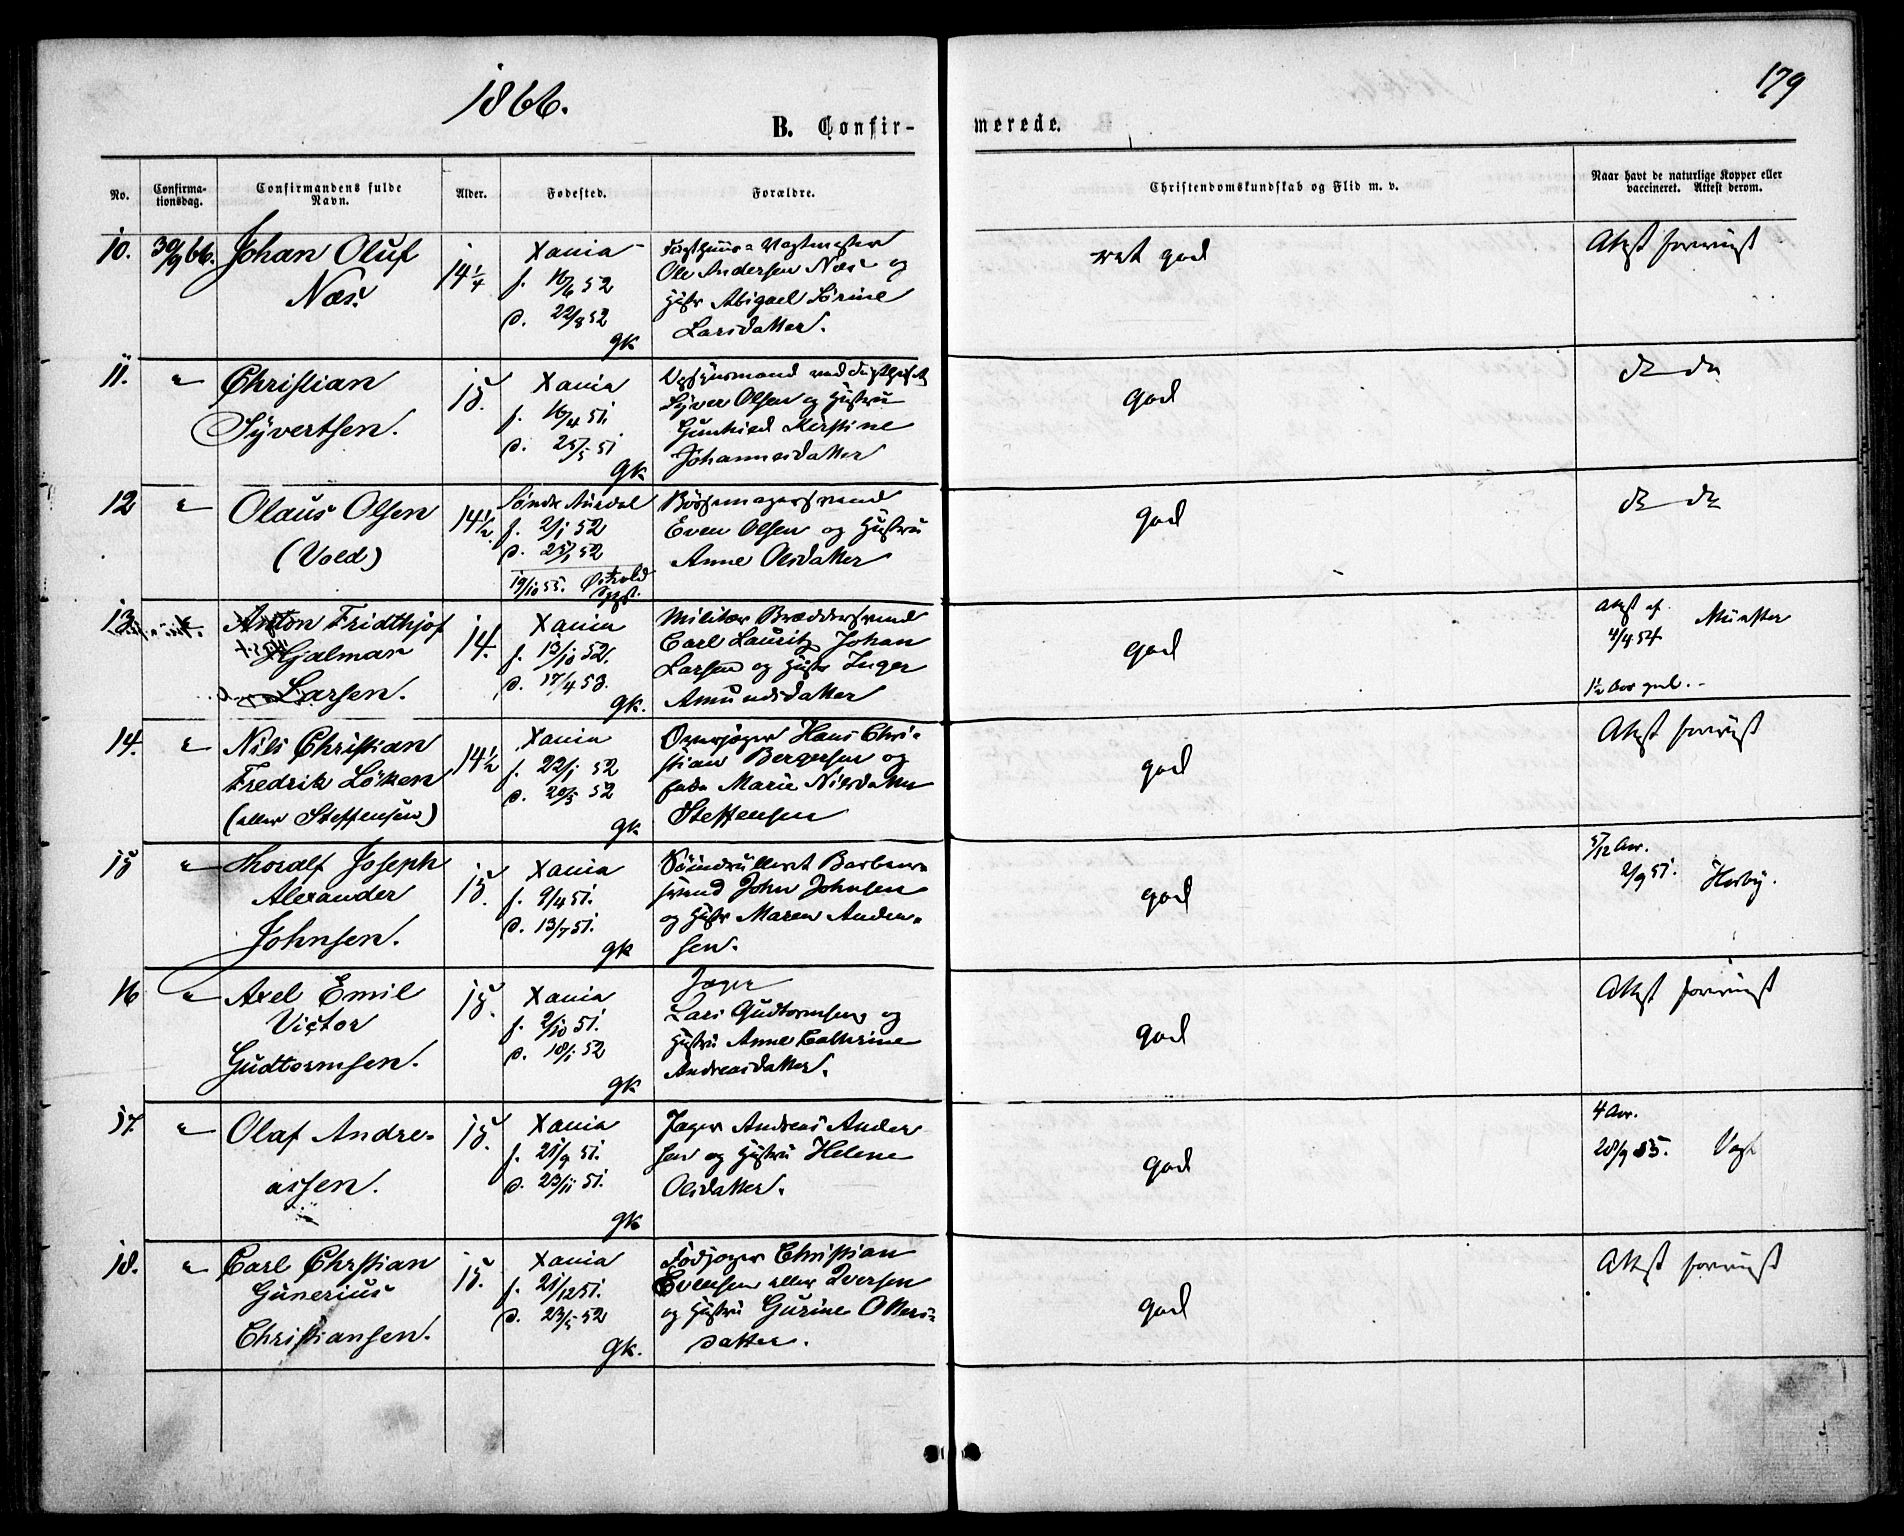 1866.
179
B. Confir-
merede.
No.
Confirma-
tionsdag.
Confirmandens fulde
Navn.
Alder.
Fødested.
Forældre.
Christendomskundskab og Flid m. v.
Naar havt de naturlige Kopper eller
vaccineret. Attest derom.
10. 30/9 66. Johan Oluf
Næs.
14 1/4
Xania
f. 16/6 52
d. 22/8 52
gk
Vagtmester
Ole Andersen Næs og
Hustr Abigael Sørine
Larsdatter.
ret god
Attest forevist
11. " Christian
Syvertsen.
15.
Xania
f. 16/4 51.
d. 25/5 51
gk
Syver Olsen og Hustru
Gunhild Kirstine
Johannesdatter
god
do do
12 " Olaus Olsen
(Vold)
14 1/2.
Søndre Aurdal
f. 2/1 52
d. 25/1 52
19/10 55.
Bøssemagersvend
Even Olsen og Hustru
Anne Olsdatter
god
do do
13. Anton Fridthjof
Hjalmar
Larsen.
14.
Xania
f. 13/10 52.
d. 17/4 53.
gk.
Militær
Carl Lauritz Johan
Larsen og Hustr Inger
Amundsdatter
god
Attest af Münster
4/4 54
1 1/2 Aar gml.
14. " Nils Christian
Fredrik Løken
(eller Steffensen)
14 1/2
Xania
f. 22/1 52
d. 20/5 52
gk
Hans Chri-
stian Bergersen og
Marie Nilsdatter
Steffensen
god
Attest forevist
15 " Thoralf Joseph
Alexander
Johnsen.
15.
Xania
f. 9/4 51.
d. 13/7 51.
gk
Barber-
svend John Johnsen
og Hustr Maren Ander-
sen.
god
5/12 Aar.
2/9 51. Heiby.
16 " Axel Emil
Victor
Gudtormsen.
15.
Xania
f. 2/10 51.
d. 18/1 52
gk
Jæger
Lars Gudtormsen og
Hustru Anne Cathrine
Andreasdatter.
god
Attest forevist
17. " Olaf Andre-
assen.
15.
Xania
f. 21/9 51.
d. 23/11 51.
gk
Jæger Andreas Ander
sen og Hustru Helene
Olsdatter.
god
4 Aar.
28/9 55. Vogt
18. " Carl Chrstian
Gunerius
Christiansen.
15.
Xania
f. 21/12 51.
d. 23/5 52
gk.
Christian
Evensen eller Iversen
og Hustru Gurine Otters-
datter.
god
Attest forevist